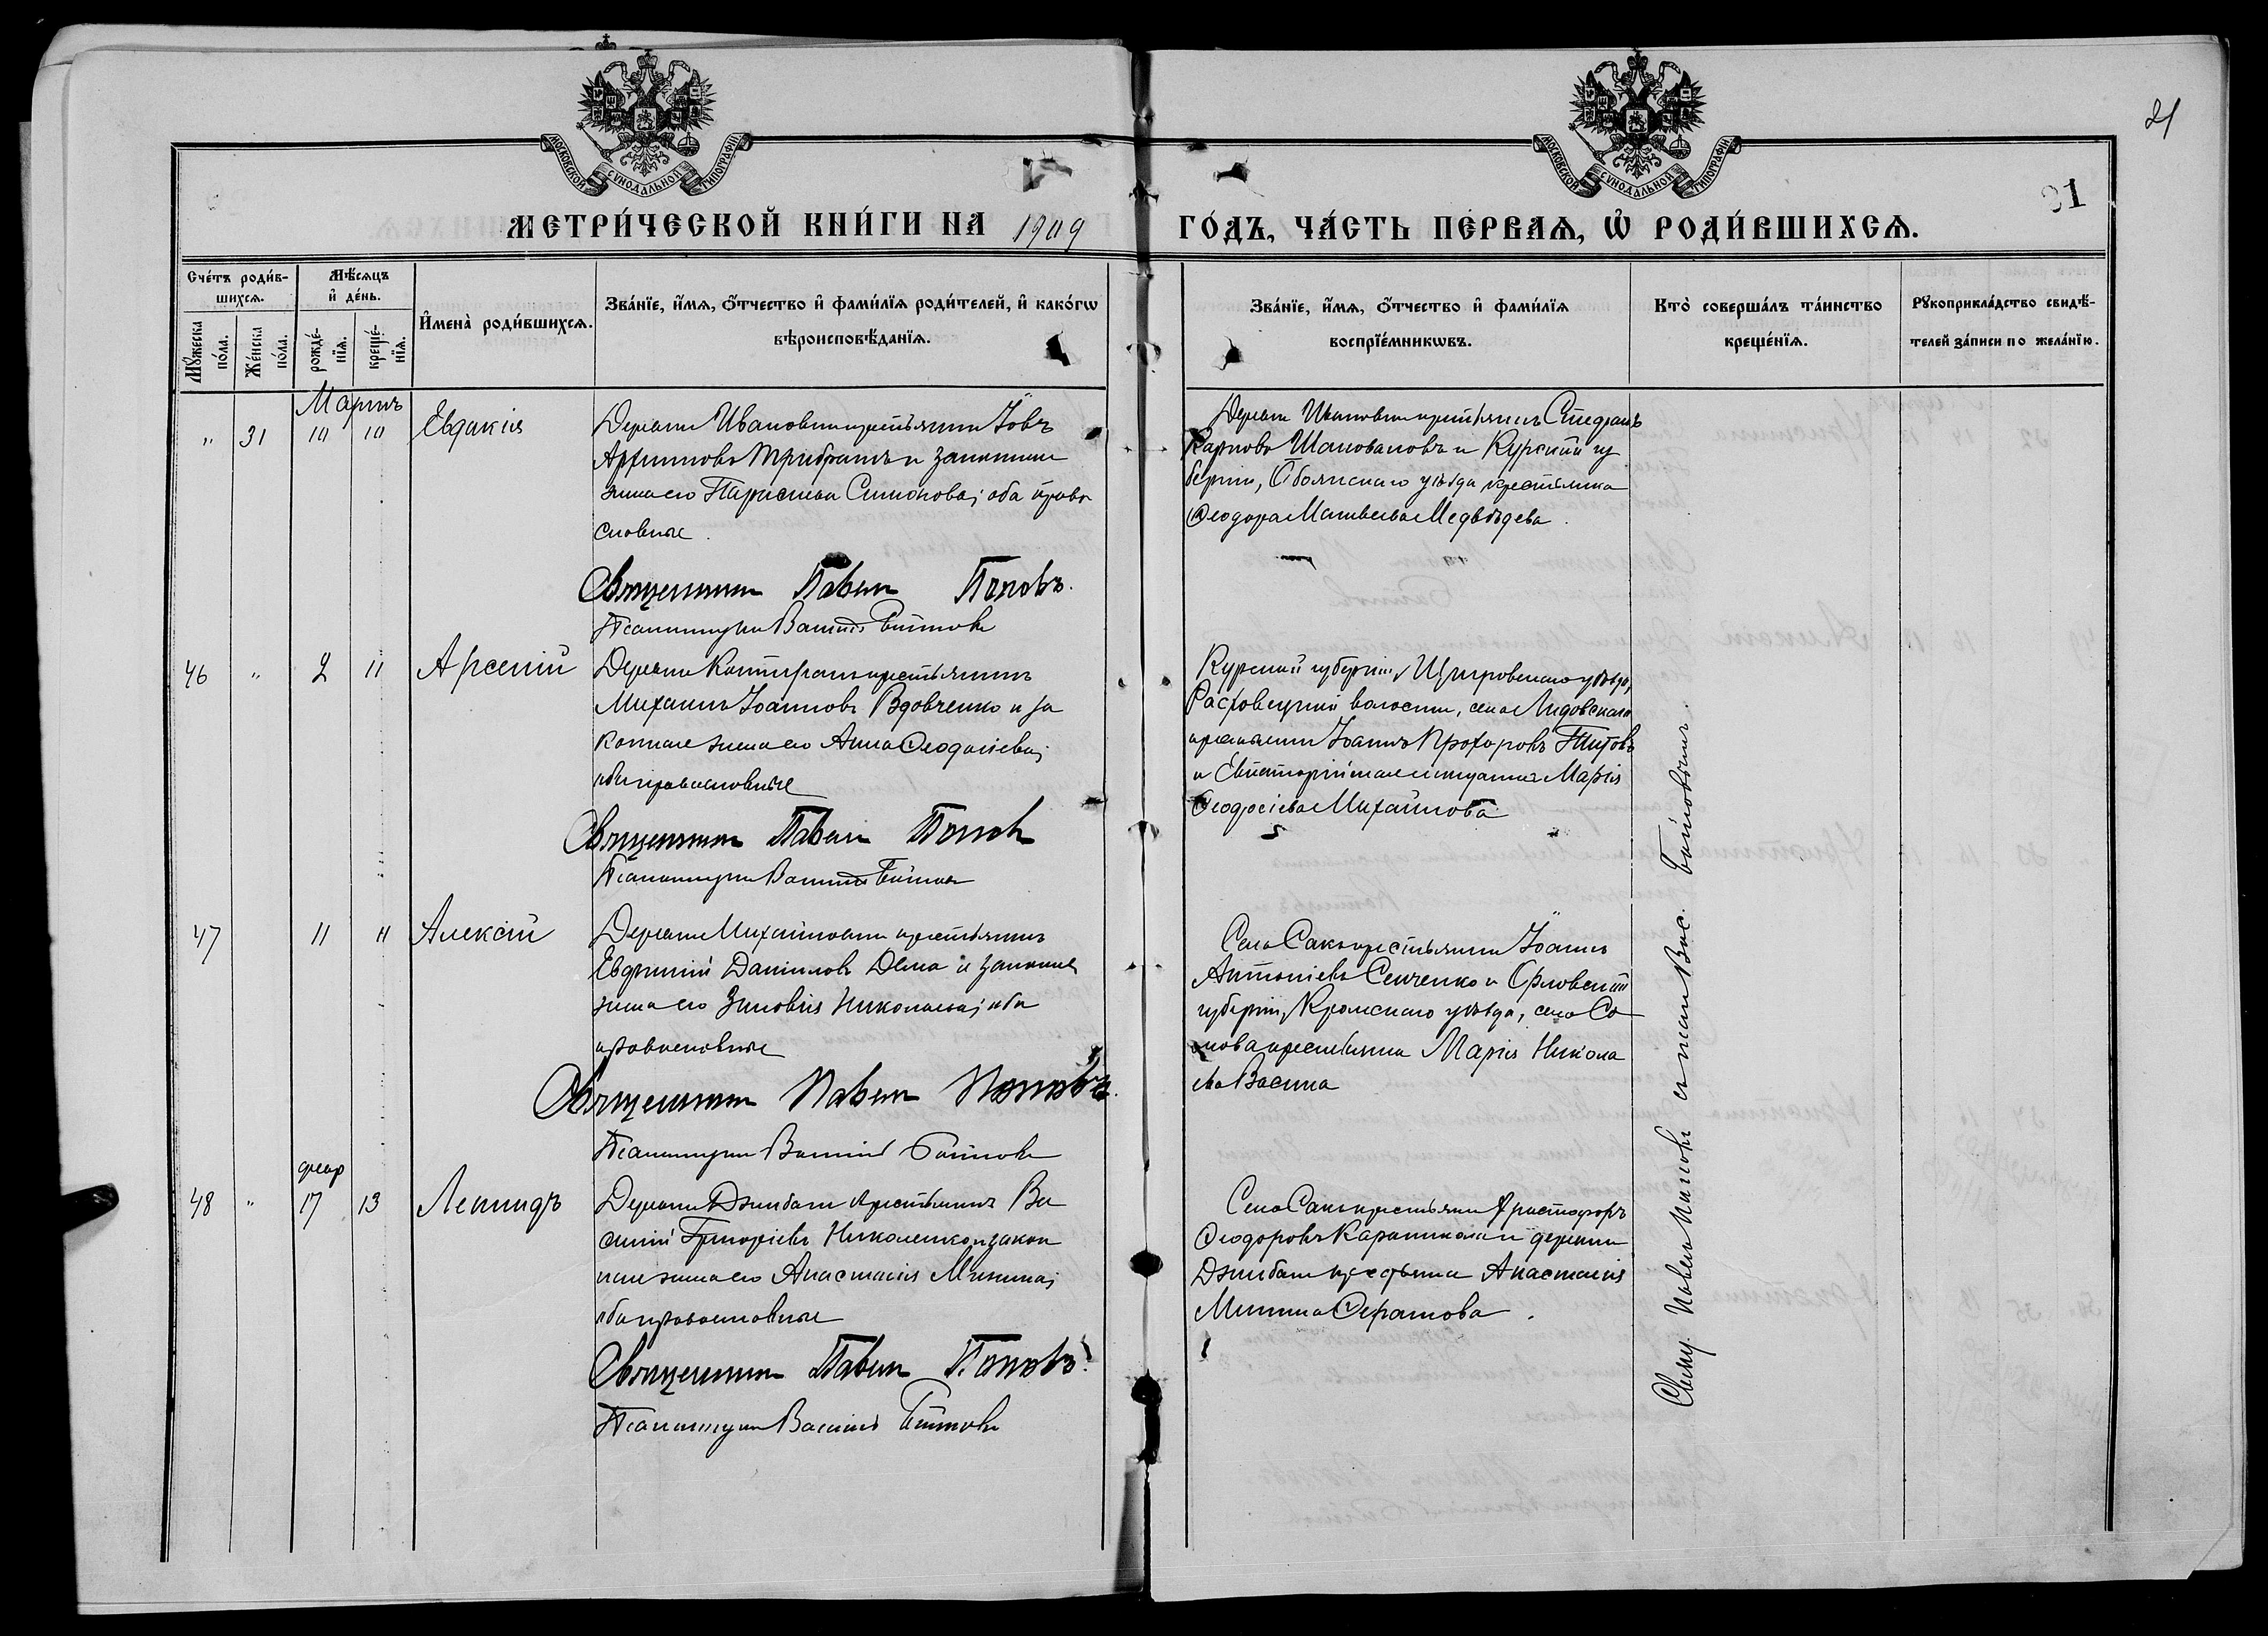 21
МОСКОВСКОЙ СѴНОДАЛЬНОЙ ТИПОГРАФІИ
МОСКОВСКОЙ СѴНОДАЛЬНОЙ ТИПОГРАФІИ
МЕТРИ́ЧЕСКОЙ КНИ́ГИ НА 1909
ГО́ДЪ, ЧА́СТЬ ПЕ́РВАѦ, Ѡ҆ РОДИ́ВШИХСѦ.
Сче́тъ роди́в-
шихсѧ.
Мꙋ́жеска
по́ла.
Же́нска
по́ла.
Мѣ́сѧцъ
и҆ де́нь.
рожде́-
нїѧ.
креще́-
нїѧ.
И҆мена̀ роди́вшихсѧ.
Зва́нїе, и҆́мѧ, ѻ҆́тчество и҆ фами́лїѧ роди́телей, и҆ како́гѡ
вѣроисповѣ́данїѧ.
Зва́нїе, и҆́мѧ, ѻ҆́тчество и҆ фами́лїѧ
воспрїе́мникѡвъ.
Кто̀ соверша́лъ та́инство
креще́нїѧ.
Рꙋкоприкла́дство свидѣ́-
телей за́писи по жела́нїю.
Мартъ
" 31 10 10 Евдокія
Деревни Ивановки крестьянинъ Іовъ
и законная
жена его Симонова; оба право
славные.
Священникъ Павелъ Поповъ.
Псаломщикъ Василій
Деревни Ивановки крестьянинъ Стефанъ
Карповъ Шаповаловъ и Курской гу
берніи, Обоянскаго уѣзда крестьянка
Ѳеодора Матвѣева Медвѣдева.
46 " 2 11 Арсеній
Деревни крестьянинъ
Михаилъ Іоанновъ Вдовченко и за
конная жена его Анна Ѳеодосіева;
оба православные
Священникъ Павелъ Поповъ
Псаломщикъ Василій
Курской губерніи, Щигровскаго уѣзда,
Расховецкой волости, села Лидовскаго
крестьянинъ Іоаннъ Прохоровъ Титовъ
и Евпаторійская мѣщанка Марія
Ѳеодосіева Михайлова
47 11 11 Алексій
Деревни Михайловки крестьянинъ
Евфимій Даніиловъ Дема и законная
жена его Зиновія Николаева; оба
православные
Священникъ Павелъ Поповъ.
Псаломщикъ Василій
Села Саки крестьянинъ Іоаннъ
Антоніевъ Сенченко и Орловской
губерніи, Кромскаго уѣзда, села Со
кова крестьянка Марія Никола
ева Васина
февр
48 " 17 13 Леонидъ
Деревни Джабачи крестьянинъ Ва
силій Григоріевъ Николенко и закон
ная жена его Анастасія Минина;
оба православные
Священникъ Павелъ Поповъ.
Псаломщикъ Василій
Села Саки крестьянинъ Христофоръ
Ѳеодоровъ и деревни
крестьянка Анастасія
Минина
Свящ. Павелъ Поповъ съ псал. Вас.